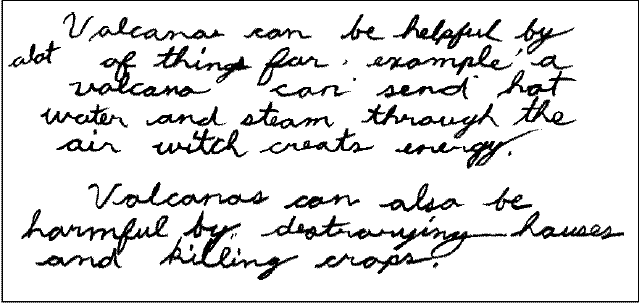 Volcanos can be helpful by
alot of things for example a
volcano can send hot
water and steam through the
air witch creats energy.
Volcanos can also be
harmful by destrorying houses
and killing crops.